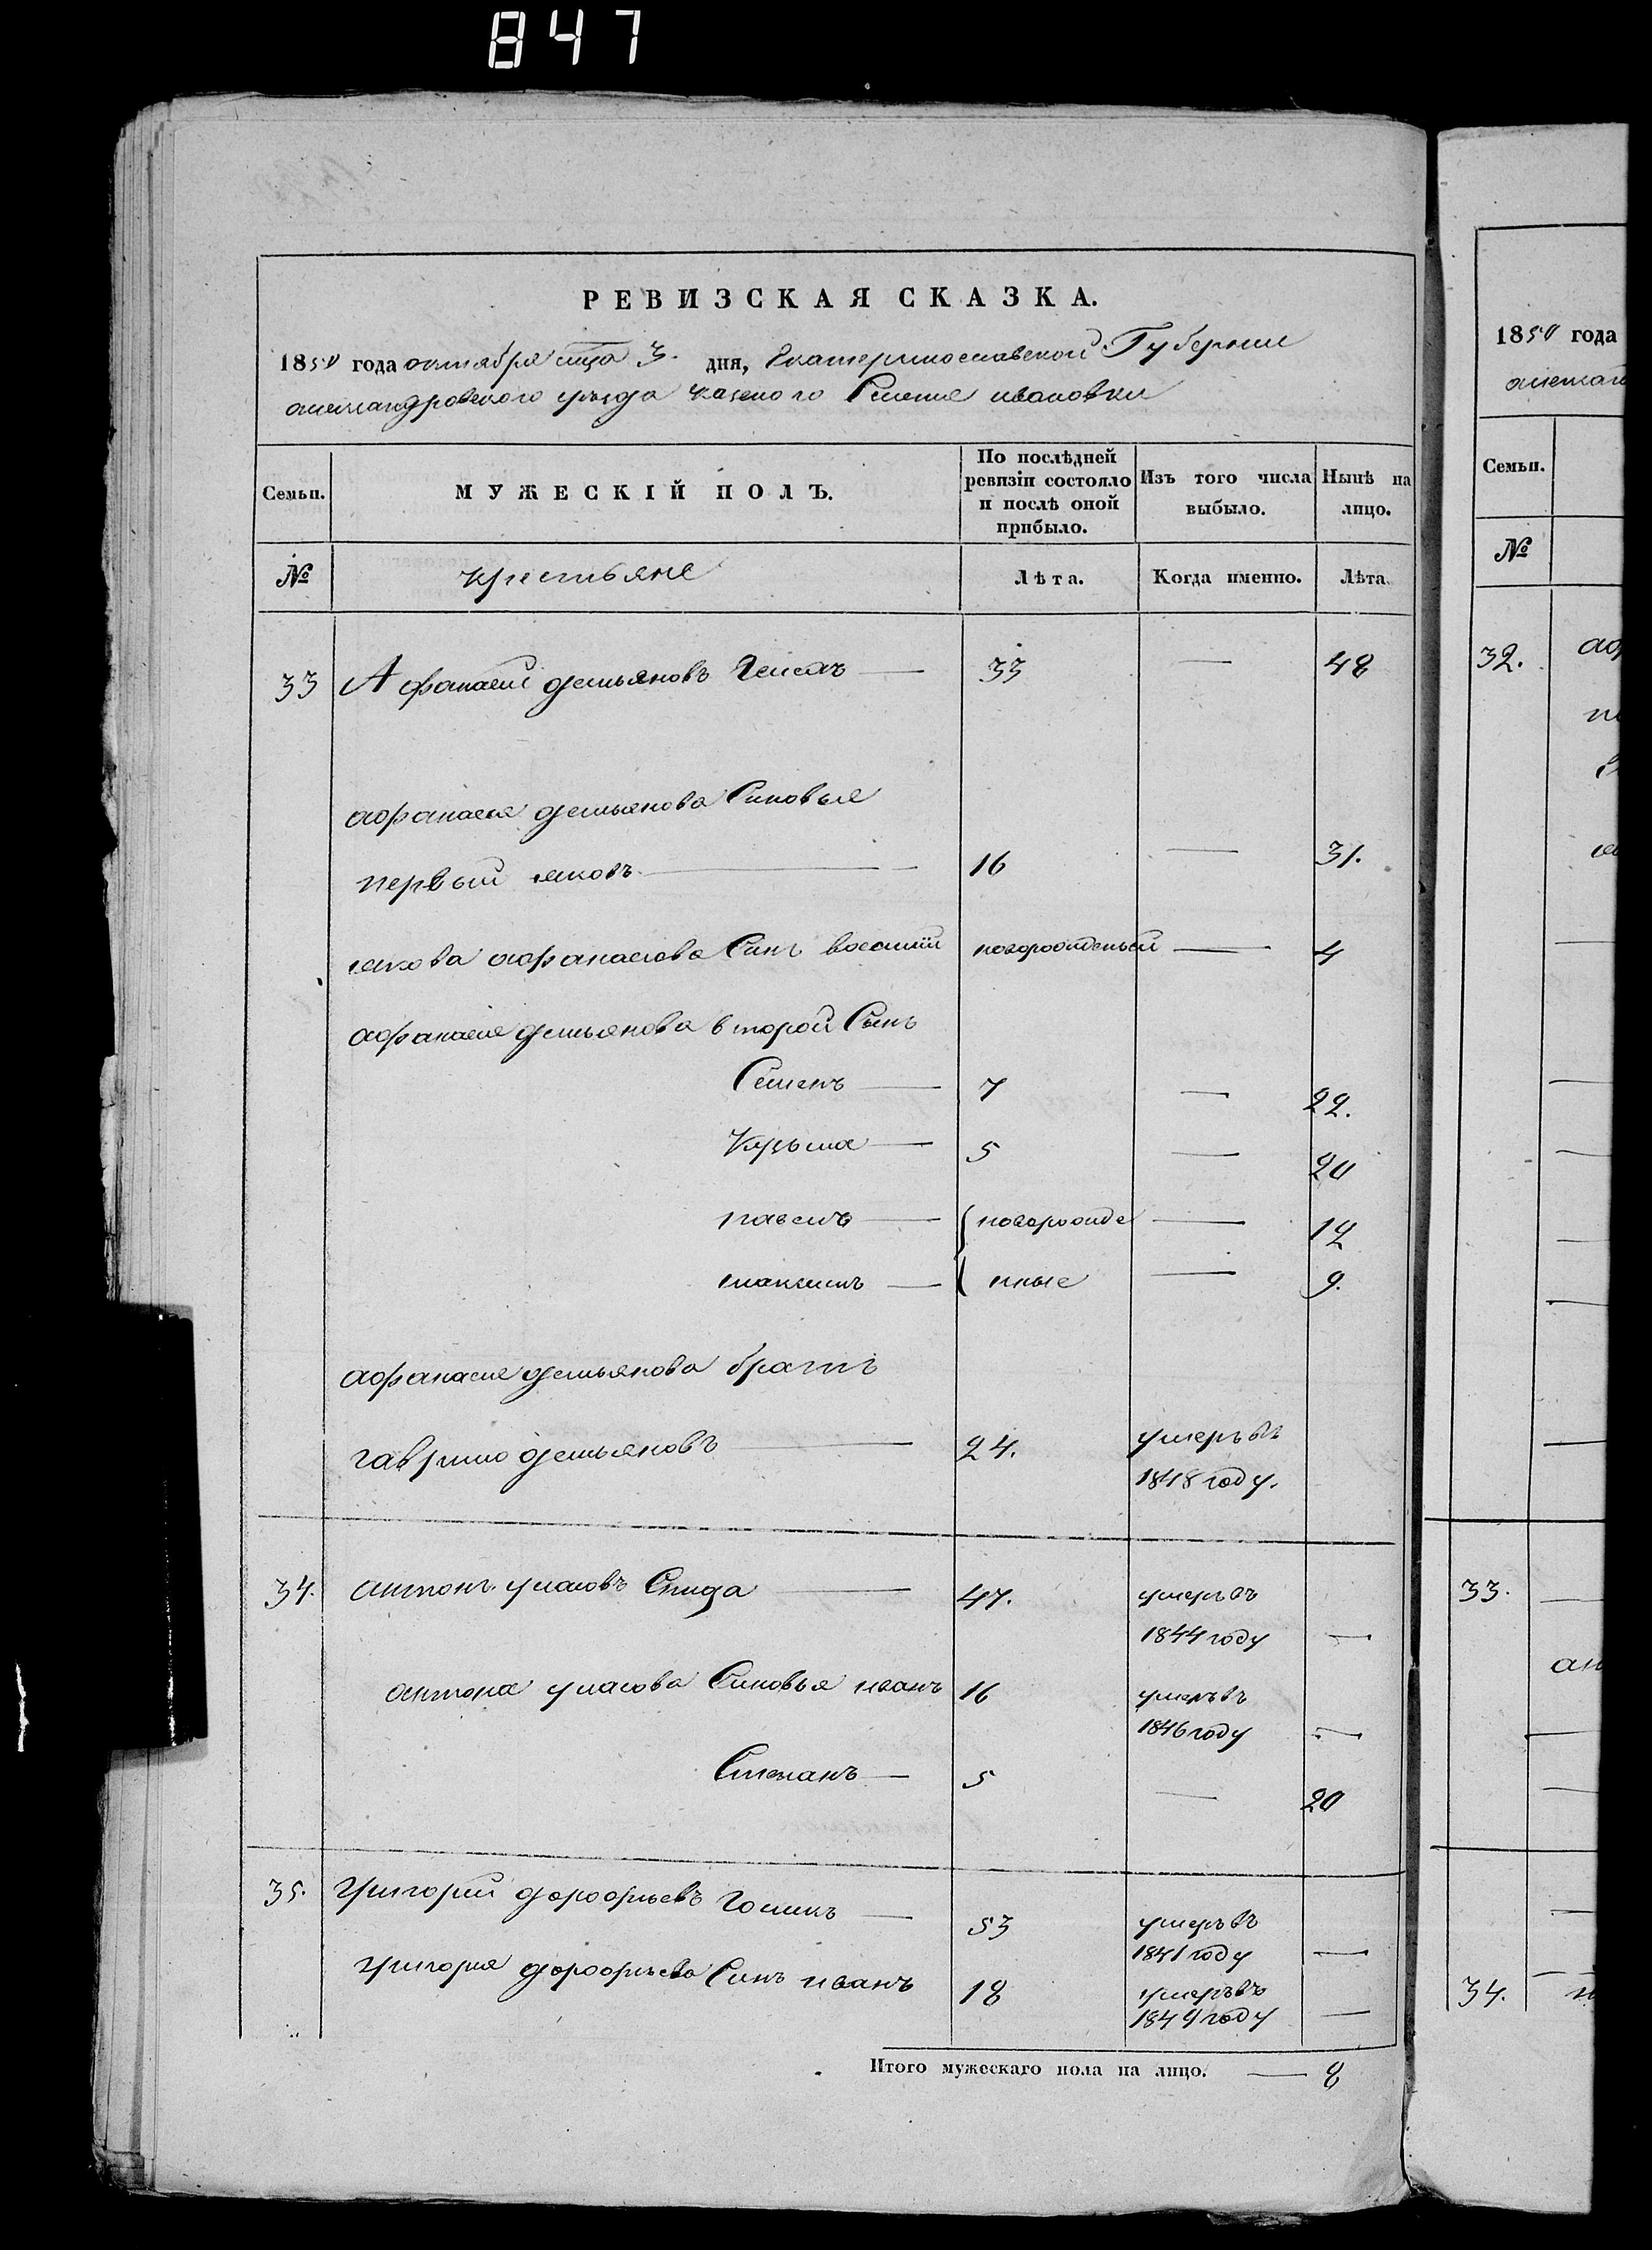 847
РЕВИЗСКАЯ СКАЗКА.
1850 года октября мца 3. дня, Екатеринославской Губернии
александровского уезда казеного Селения ивановки
Семьи.
МУЖЕСКІЙ ПОЛЪ.
По послѣдней ревизіи состояло и послѣ оной прибыло.
Изъ того числа выбыло.
Нынѣ на лицо.
№ крестьяне Лѣта. Когда именно. Лѣта.
33 Афанасий демьяновъ — 33 — 48
афанасия демьянова Синовья
первый яковъ — 16 — 31.
якова афанасова Синъ новорожденый — 4
афанасия демьянова второй Сынъ
Семенъ — 7 — 22.
Кузьма — 5 — 20
павелъ — новорожде — 12
максимъ — нные — 9.
афанасия демьянова братъ
гаврило демьяновъ — 24. умеръ въ
1848 году.
34. антонъ власовъ — 47. умеръ въ
1844 году —
антона власова Синовья иванъ 16 умеръ въ
1846 году —
Степанъ — 5 — 20
35. григорий дорофьевъ — 53 умеръ въ
1841 году —
григория дорофьева Синъ иванъ 18 умеръ въ
1849 году —
Итого мужескаго пола на лицо. — 8
1850 года
Семьи.
№
32.
33.
34.